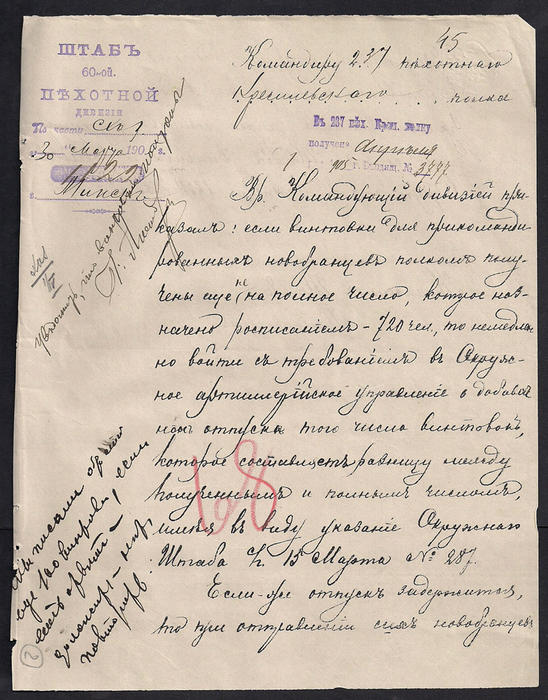 45
ШТАБЪ
60-ой.
ПѢХОТНОЙ
ДИВИЗІИ
По части
30 Марта 190 г.
г. Минскъ
Командиру 237 пѣхотнаго
Кремлевскаго полка
Въ 237 пѣх. Крем. полку
получена Апрѣля
1 905 г. Входящ. № 3777
Вр. Командующій дивизіей при-
казалъ: если винтовки для прикоманди-
рованныхъ новобранцевъ полкомъ полу-
чены еще не на полное число, которое наз-
начено росписаніемъ - 720 чел., то немедлен-
но войти съ требованіемъ въ Окруж-
ное артиллерійское управленіе о добавоч-
номъ отпускѣ того числа винтовокъ,
которое составляетъ разницу между
полученнымъ и полнымъ числомъ,
имѣя въ виду указаніе Окружнаго
Штаба отъ 15 Марта № 287.
Если-же отпускъ задержится,
то при отправленіи сихъ новобранцевъ
108
Мы писали об этом
еще
если
повторить
2